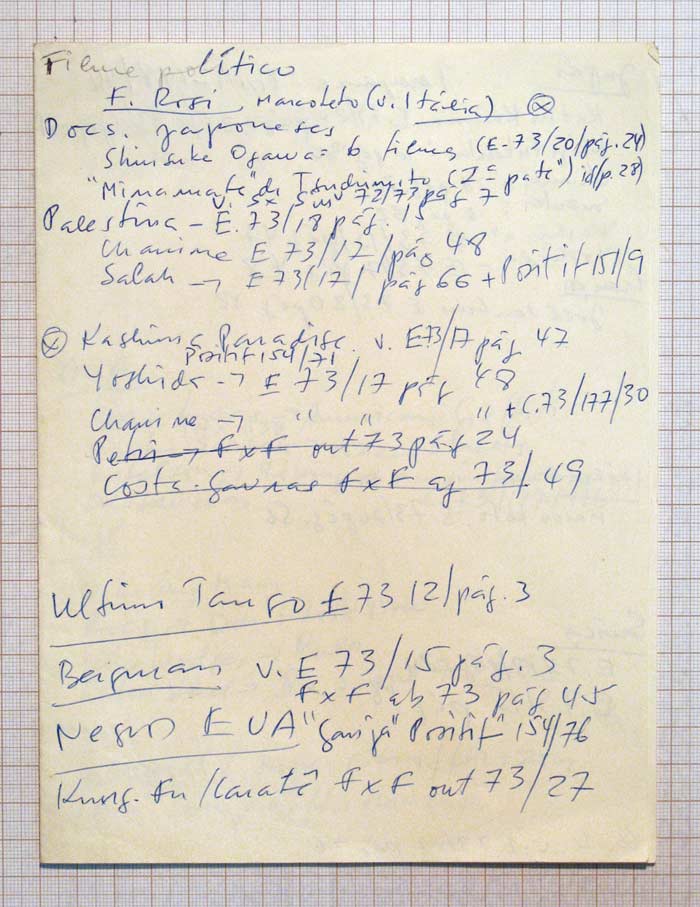 Filme político
F. Rosi, Marcoleto (v. Itália) ⓧ
Docs. japoneses
Shinsuke Ogawa = 6 filmes (E-73/20/pág. 24)
"Minamata" di Tsuchimoto (I = parte") id (p. 28)
v. Sx 72/73 pág 7
Palestina - E. 73/18 pág. 15
Chahine E 73/17/pág 48
Salah → E 73/17/ pág 66 + Positif 151/9
ⓧ Kashima Paradise. v. E 73/17 pág 47
Positif 154/71
Yoshida → E 73/17 pág 48
Chahine → " " " + C. 73/177/30
Petri → FxF out 73 pág 24
Costa-Gavras FxF ag 73/49
Ultimo Tango E 73 12/pág. 3
Bergman v. E 73/15 pág. 3
FxF ab 73 pág 45
Negros EUA "Ganja" Positif 154/76
Kung-Fu/Caratê FxF out 73/27